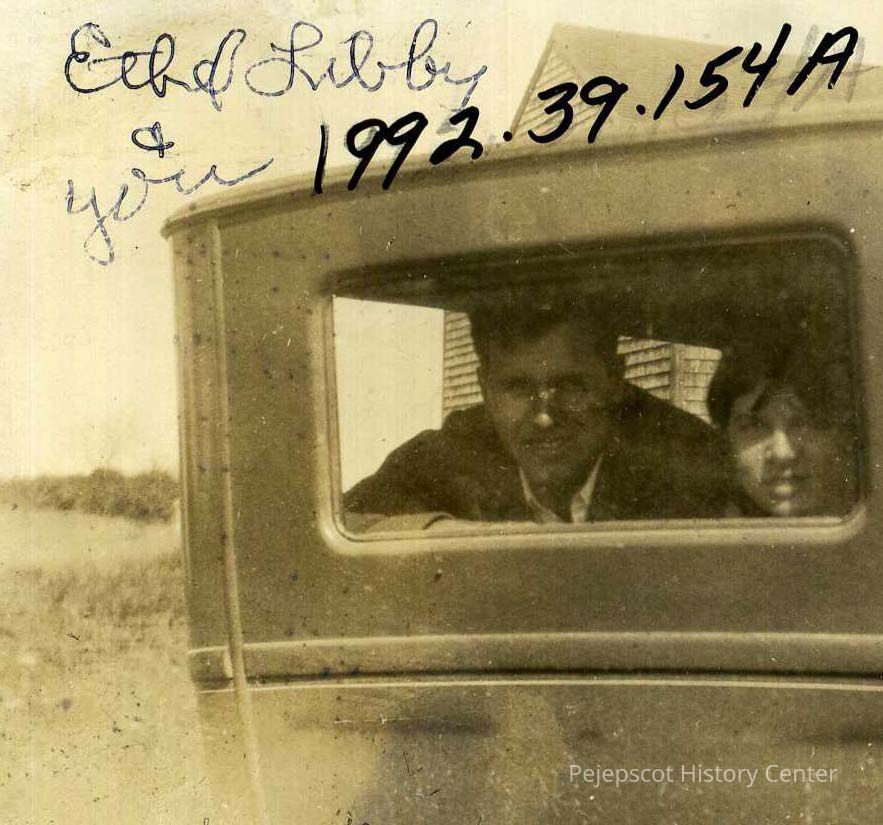 Ethel Libby
&
you
1992.39.154A
Pejepscot History Center